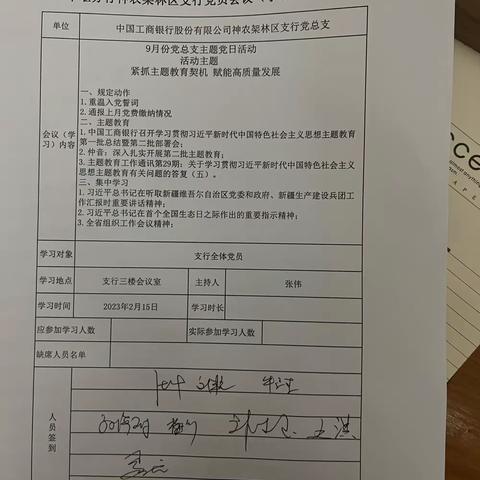 单位 中国工商银行股份有限公司神农架林区支行党总支
9月份党总支主题党日活动
活动主题
紧抓主题教育契机 赋能高质量发展
一、规定动作
1.重温入党誓词
2.通报上月党费缴纳情况
二、主题教育
1.中国工商银行召开学习贯彻习近平新时代中国特色社会主义思想主题教育
第一批总结暨第二批部署会；
2.仲音：深入扎实开展第二批主题教育；
会议（学习）内容
3.主题教育工作通讯第29期：关于学习贯彻习近平新时代中国特色社会主义思想
主题教育有关问题的答复（五）。
三、集中学习
1.习近平总书记在听取新疆维吾尔自治区党委和政府、新疆生产建设兵团工
作汇报时重要讲话精神；
2.习近平总书记在首个全国生态日之际作出的重要指示精神；
3.全省组织工作会议精神；
学习对象 支行全体党员
学习地点 支行三楼会议室 主持人 张伟
学习时间 2023年2月15日 学习时长
应参加学习人数 实际参加学习人数
缺席人员名单
人员签到